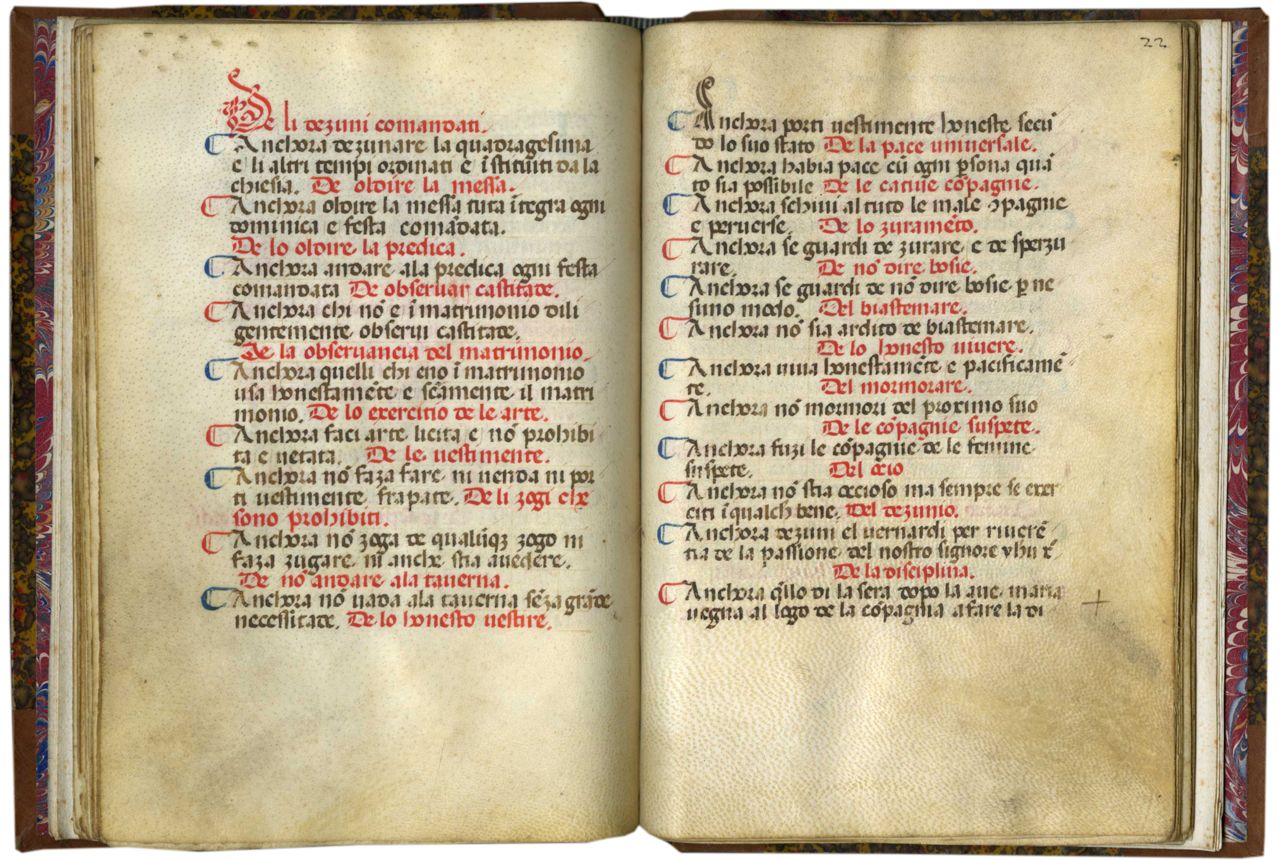 De li dezuni comandati.
Anchora dezunare la quadragesima
e li altri tempi ordinati e ĩstituti da la
chiesia. De oldire la messa.
Anchora oldire la messa tuta ĩtegra ogni
dominica e festa comãdata.
De lo oldire la predica.
Anchora andare ala predica ogni festa
comandata De observar castitade.
Anchora chi nõ e ĩ matrimonio dili
gentemente observi castitate.
De la observancia del matrimonio.
Anchora quelli chi eno ĩ matrimonio
usa honestamẽte e scãmente il matri
monio. De lo exercitio de le arte.
Anchora faci arte licita e nõ prohibi
ta e vetata. De le vestimente.
Anchora nõ faza fare ni venda ni por
ti vestimente frapate. De li zogi che
sono prohibiti.
Anchora nõ zoga de qualũqz zogo ni
faza zugare, ni anche stia avedere.
De nõ andare ala taverna.
Anchora nõ vada ala taverna sẽza grãde
necessitate. De lo honesto vestire.
22
Anchora porti vestimente honeste secũ
do lo suo stato De la pace universale.
Anchora habia pace cũ ogni p̱sona quã
to sia possibile De le cative cõpagnie.
Anchora schivi al tuto le male ꝯpagnie
e perverse. De lo zuramẽto.
Anchora se guardi de zurare e de sperzu
rare. De nõ dire bosie.
Anchora se guardi de nõ dire bosie p̱ ne
suno modo. Del biastemare.
Anchora nõ sia ardito de biastemare.
De lo honesto vivere.
Anchora viva honestamẽte e pacificamẽ
te. Del mormorare.
Anchora nõ mormori del proximo suo
De le cõpagnie suspete.
Anchora fuzi le cõpagnie de le femine
suspete. Del ocio
Anchora nõ stia occioso ma sempre se exer
citi ĩ qualch bene. Del dezunio.
Anchora dezuni el vernardi per riverẽ
tia de la passione del nostro signore yhu x̃
De la disciplina.
Anchora q̃llo di la sera dopo la ave maria
vegna al logo de la cõpagnia a fare la di